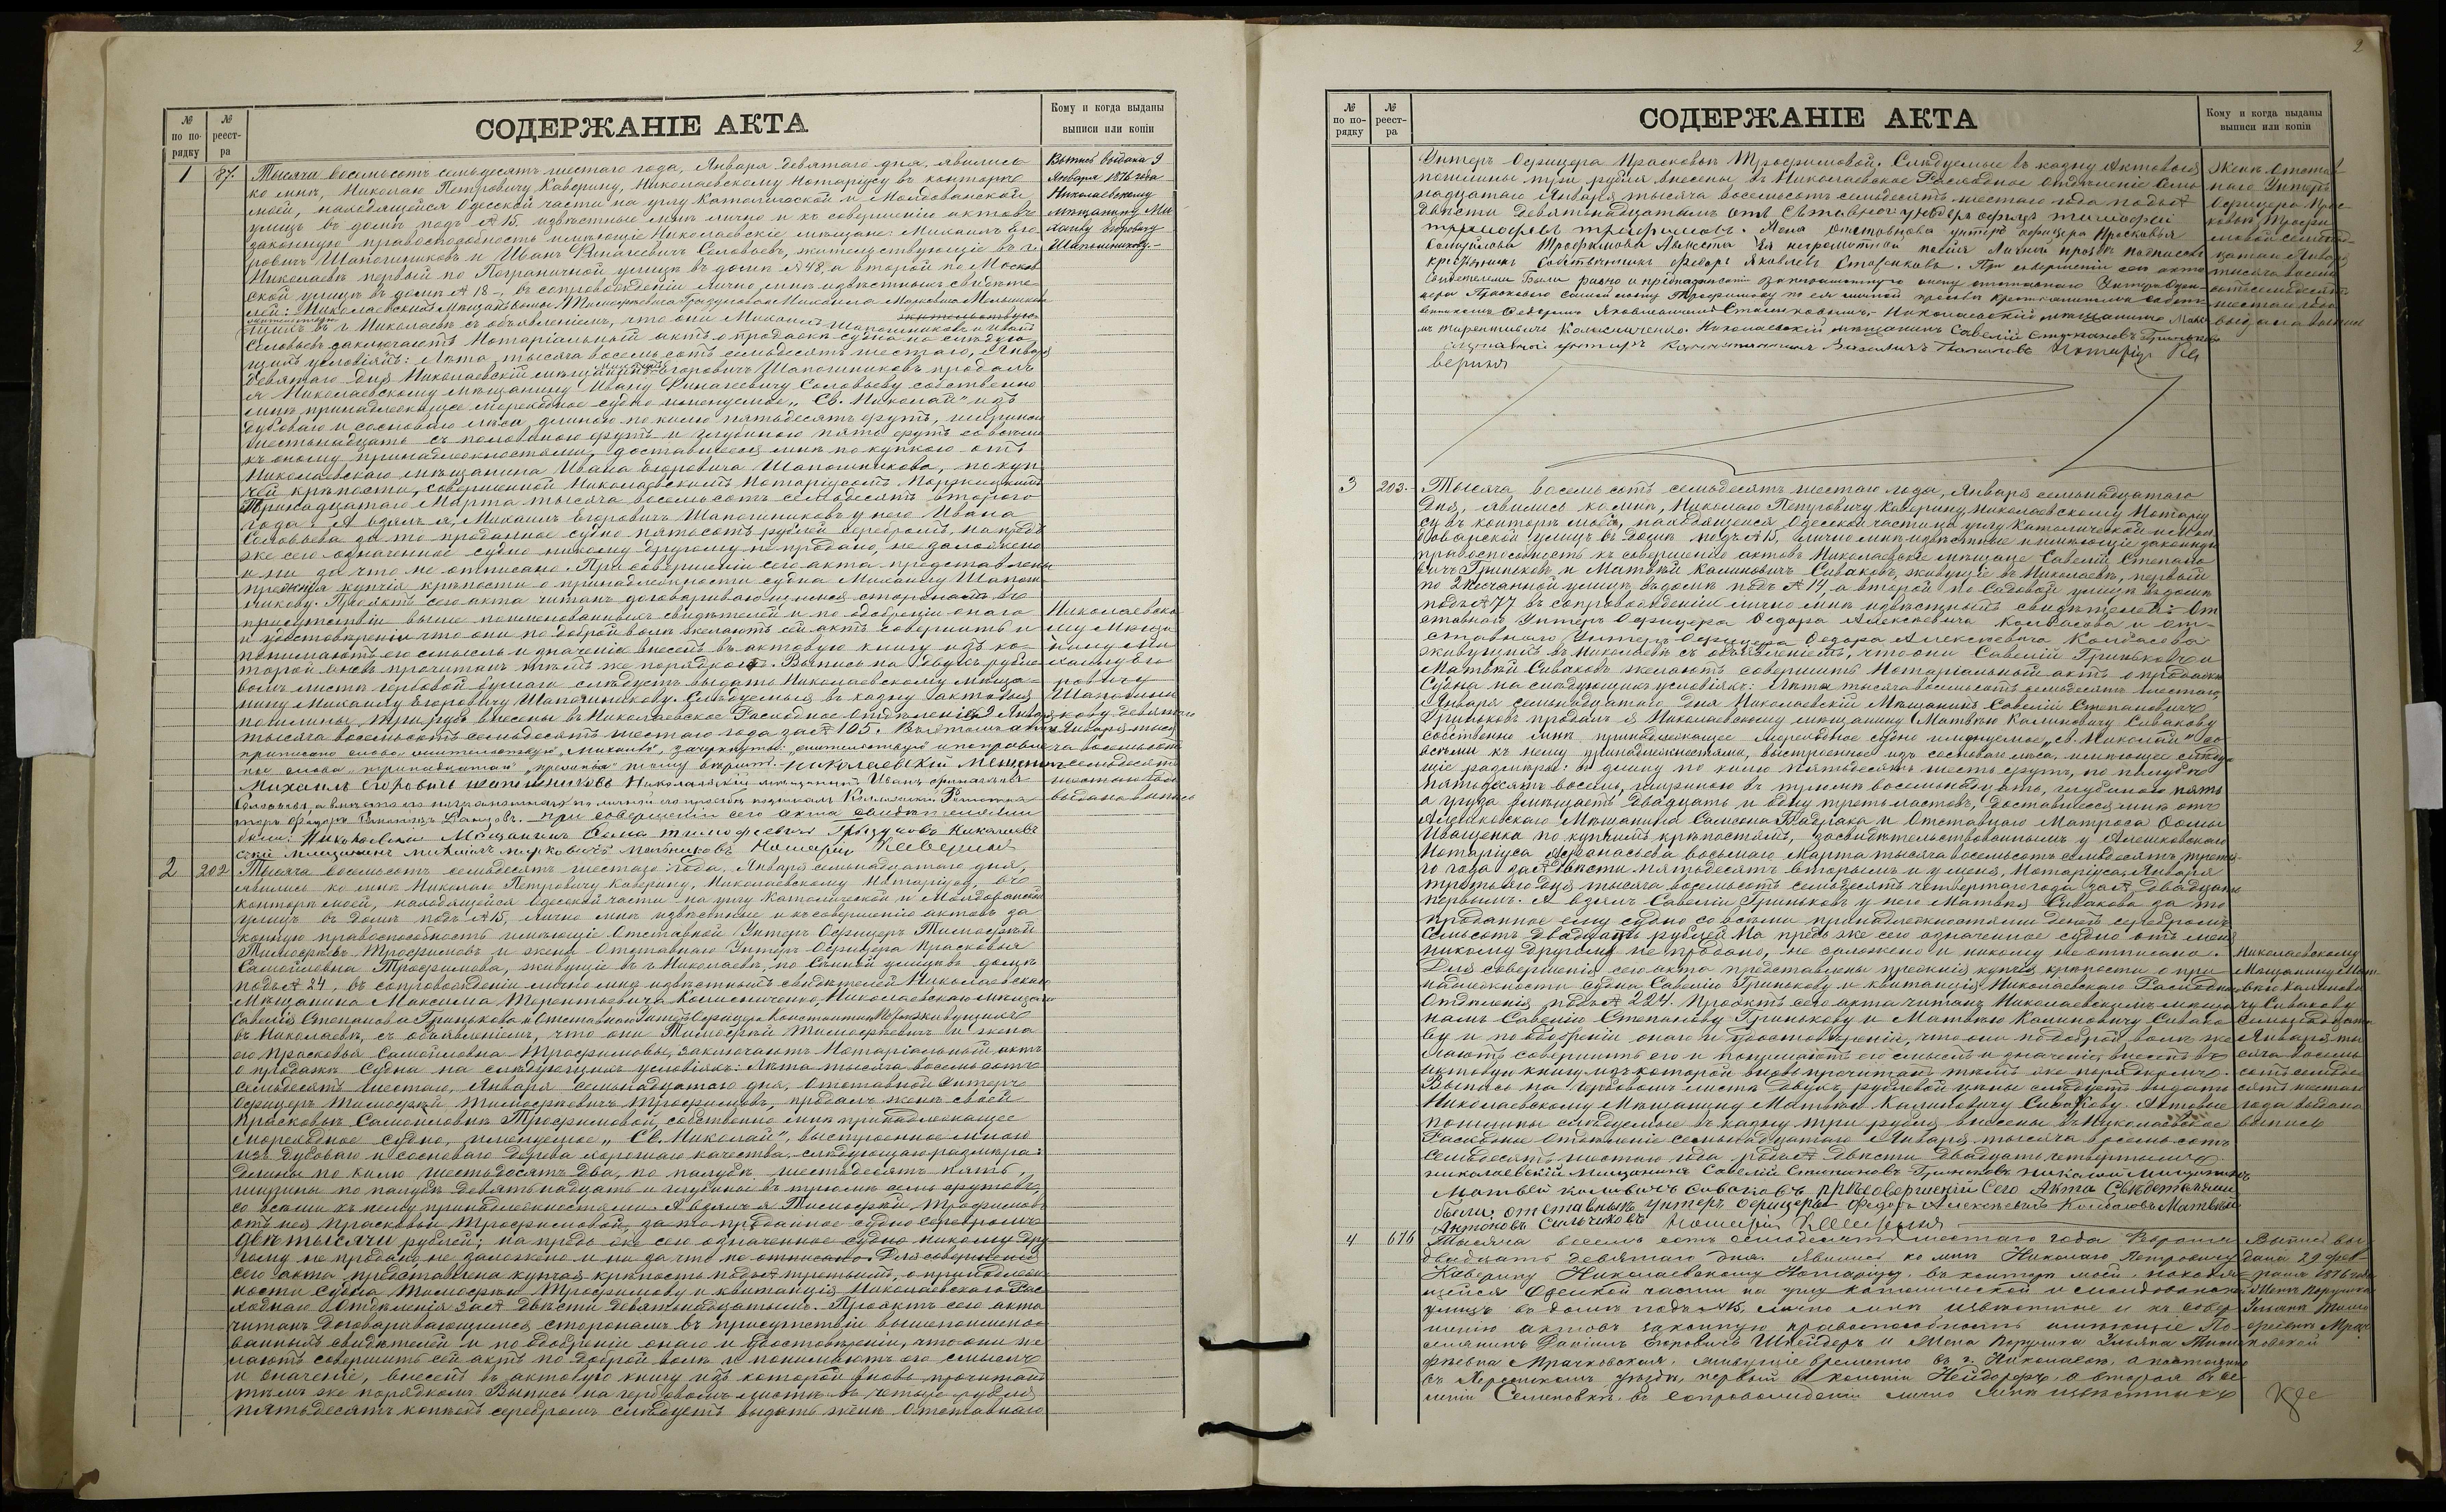 № по порядку
№ реестра
СОДЕРЖАНІЕ АКТА
Кому и когда выданы выписи или копіи
1
87.
Тысяча восемьсотъ семьдесятъ шестаго года, Января девятаго дня, явились
ко мнѣ, Николаю Петровичу Каверину, Николаевскому Нотаріусу въ конторѣ
моей, находящейся Одесской части на углу Католической и Молдованской
улицъ въ домѣ подъ № 15. извѣстные мнѣ лично и къ совершенію актовъ
законную правоспособность имѣющіе Николаевскіе мѣщане: Михаилъ Его
ровичъ Шапошниковъ и Иванъ Соловьевъ, жительствующіе въ г.
Николаевѣ первый по Пограничной улицѣ въ домѣ № 48, а второй по Москов
ской улицѣ въ домѣ № 18 въ сопровожденіи лично мнѣ извѣстныхъ свидѣте
лей: Николаевскихъ Мѣщанъ
въ г. Николаевѣ съ объявленіемъ, что они Михаилъ Шапошниковъ и Иванъ
Соловьевъ заключаютъ Нотаріальный актъ о продажѣ судна на слѣдую
щихъ условіяхъ: Лѣта тысяча восемьсотъ семьдесятъ шестаго, Января
девятаго дня Николаевскій мѣщанинъ Михаилъ Егоровичъ Шапошниковъ продалъ
я Николаевскому мѣщанину Ивану Соловьеву собственно
мнѣ принадлежащее мореходное судно именуемое „Св. Николай" изъ
дубоваго и сосноваго лѣса, длиною по килю пятьдесятъ футъ, шириною
шестьнадцать съ половиною футъ и глубиною пять футъ со всѣми
къ оному принадлежностями, доставшееся мнѣ по купчею отъ
Николаевскаго мѣщанина Ивана Егоровича Шапошникова, по куп
чей крѣпости, совершенной Николаевскимъ Нотаріусомъ
Тринадцатаго Марта тысяча восемьсотъ семьдесятъ втораго
года. А взялъ я, Михаилъ Егоровичъ Шапошниковъ у него Ивана
Соловьева за то проданное судно пятьсотъ рублей серебромъ, напредь
же сего означенное судно никому другому не продано, не заложено
и ни за что не отписано. При совершеніи сего акта представлены
прежнія купчія крѣпости о принадлежности судна Михаилу Шапош
никову. Проектъ сего акта читанъ договаривающимся сторонамъ въ
присутствіи выше поименованныхъ свидѣтелей и по одобреніи онаго
и удостовѣреніи что они по доброй волѣ желаютъ сей актъ совершить и
понимаютъ его смыслъ и значеніе внесенъ въ актовую книгу изъ ко
торой вновь прочитанъ тѣмъ же порядкомъ. Выпись на
листѣ гербовой бумаги слѣдуетъ выдать Николаевскому мѣща
нину Михаилу Егоровичу Шапошникову. Слѣдуемыя въ казну актовыя
пошлины три рубл. внесены въ Николаевское Расходное Отдѣленіе 9 Января
тысяча восемьсотъ семьдесятъ шестаго года за № 105.
Михаилъ Егоровичъ Шапошниковъ Николаевскій мѣщанинъ Иванъ
При совершеніи сего акта свидѣтелями
были: Николаевскій Мѣщанинъ Николаев
скій мѣщанинъ Михаилъ Марковичъ Мельниковъ Нотаріусъ Каверинъ
Выпись выдана 9
Января 1876 года
Николаевскому
мѣщанину Ми
хаилу Егоровичу
Шапошникову
Николаевско
му мѣща
нину Ми
хаилу Его
ровичу
Шапошни
кову девятаго
Января тыся
ча восемьсотъ
семьдесятъ
шестаго года
выдана выпись
2
202
Тысяча восемьсотъ семьдесятъ шестаго года, Января семьнадцатаго дня,
явились ко мнѣ Николаю Петровичу Каверину, Николаевскому Нотаріусу, въ
конторѣ моей, находящейся Одесской части на углу Католической и Молдованской
улицъ въ домѣ подъ № 15, лично мнѣ извѣстные и къ совершенію актовъ за
конную правоспособность имѣющіе Отставной Унтеръ Офицеръ Тимофей
Тимофеевъ Трофимовъ и жена Отставнаго Унтеръ Офицера Прасковья
Самойловна Трофимова, живущіе въ г. Николаевѣ, по Сѣнной улицѣ въ домѣ
подъ № 24, въ сопровожденіи лично мнѣ извѣстныхъ свидѣтелей Николаевскаго
Мѣщанина Максима Терентьевича Колисниченко, Николаевскаго мѣщани
Савелія Степанова Гринькова и Отставнаго Унтеръ Офицера Константина живущихъ
въ Николаевѣ, съ объявленіемъ, что они Тимофей Тимофеевичъ и жена
его Прасковья Самойловна Трофимовы, заключаютъ Нотаріальный актъ
о продажѣ Судна на слѣдующихъ условіяхъ: Лѣта тысяча восемьсотъ
семьдесятъ шестаго, Января семьнадцатаго дня, Отставной Унтеръ
Офицеръ Тимофей Тимофеевичъ Трофимовъ, продалъ женѣ своей
Прасковьѣ Самойловнѣ Трофимовой, собственно мнѣ принадлежащее
мореходное судно, именуемое „Св. Николай", выстроенное мною
изъ дубоваго и сосноваго дерева хорошаго качества, слѣдующаго размѣра:
длины по килю шестьдесятъ два, по палубѣ шестьдесятъ пять,
ширины по палубѣ девятьнадцать и глубины въ трюмѣ семь футовъ,
со всѣми къ нему принадлежностями. А взялъ я Тимофей Трофимовъ
отъ нея Прасковьи Трофимовой, за то проданное судно серебромъ
двѣ тысячи рублей; напредь же сего означенное судно никому дру
гому не продано, не заложено и ни за что не отписано. Для совершенія
сего акта представлена купчая крѣпость подъ № третьимъ, о принадлеж
ности судна Тимофею Трофимову и квитанція Николаевскаго Рас
ходнаго Отдѣленія за № двѣсти девятьнадцатымъ. Проектъ сего акта
читанъ договаривающимся сторонамъ въ присутствіи вышепоимено
ванныхъ свидѣтелей и по одобреніи онаго и удостовѣреніи, что они же
лаютъ совершить сей актъ по доброй волѣ и понимаютъ его смыслъ
и значеніе, внесенъ въ актовую книгу изъ которой вновь прочитанъ
тѣмъ же порядкомъ. Выпись на гербовомъ листѣ въ четыре рубля
пятьдесятъ копѣекъ серебромъ слѣдуетъ выдать женѣ Отставнаго
2
№ по порядку
№ реестра
СОДЕРЖАНІЕ АКТА
Кому и когда выданы выписи или копіи
Унтеръ Офицера Прасковьѣ Трофимовой. Слѣдуемые въ казну Актовыя
пошлины три рубля внесены въ Николаевское Расходное Отдѣленіе Семь
надцатаго Января тысяча восемьсотъ семьдесятъ шестаго года подъ №
двѣсти девятьнадцатымъ
Трофимовъ.
крестьянинъ собственникъ Федоръ Яковлевъ Стариковъ. При совершеніи сего акта
Николаевскій мѣщанинъ
Терентьевичъ Колисниченко. Николаевскій мѣщанинъ Савелій Степановъ Гриньковъ
отставной унтеръ Нотаріусъ Ка
веринъ
Женѣ Отстав
наго Унтеръ
Офицера Прас
ковьѣ Трофи
мовой семнад
цатаго Января
тысяча восемь
сотъ семьдесятъ
шестаго года
выдана выпись
3
203.
Тысяча восемьсотъ семьдесятъ шестаго года, Января семьнадцатаго
дня, явились ко мнѣ, Николаю Петровичу Каверину, Николаевскому Нотаріу
су въ конторѣ моей, находящейся Одесской части на углу Католической и Мол
доварской улицъ въ домѣ подъ № 15, лично мнѣ извѣстные и имѣющіе законную
правоспособность къ совершенію актовъ Николаевскіе мѣщане Савелій Степано
вичъ Гриньковъ и Матвѣй Калиновичъ Сиваковъ, живущіе въ Николаевѣ, первый
по 2 Песчанной улицѣ, въ домѣ подъ № 14, а второй по Садовой улицѣ въ домѣ
подъ № 77 въ сопровожденіи лично мнѣ извѣстныхъ свидѣтелей: От
ставнаго Унтеръ Офицера Федора Алексѣевича Колбасова и От-
ставнаго Унтеръ-Офицера Федора Алексѣевича Колбасова
живущихъ въ Николаевѣ съ объявленіемъ, что они Савелій Гриньковъ и
Матвѣй Сиваковъ желаютъ совершить Нотаріальный актъ о продажѣ
Судна на слѣдующихъ условіяхъ: Лѣта тысяча восемьсотъ семьдесятъ шестаго,
Января семьнадцатаго дня Николаевскій Мѣщанинъ Савелій Степановичъ
Гриньковъ продалъ я Николаевскому мѣщанину Матвѣю Калиновичу Сивакову
собственно мнѣ принадлежащее мореходное судно именуемое „Св. Николай" со
всѣми къ нему принадлежностями, выстроенное изъ сосноваго лѣса, имѣющее слѣдую
щіе размѣры: въ длину по килю пятьдесятъ шесть футъ, по палубѣ
пятьдесятъ восемь, шириною въ трюмѣ восемьнадцать, глубиною пять
а груза вмѣщаетъ двадцать и одну треть ластовъ, доставшееся мнѣ отъ
Алешковскаго Мѣщанина Самсона и Отставнаго Матроса Фомы
Иващенка по купчимъ крѣпостямъ, засвидѣтельствованнымъ у Алешковскаго
Нотаріуса Афанасьева восьмаго Марта тысяча восемьсотъ семьдесятъ третья
го года за № двѣсти пятьдесятъ вторымъ и у меня, Нотаріуса, Января
третьяго дня тысяча восемьсотъ семьдесятъ четвертаго года за № двадцать
первымъ. А взялъ Савелій Гриньковъ у него Матвѣя Сивакова за то
проданное ему судно со всѣми принадлежностями денегъ серебромъ
семьсотъ двадцать рублей. На предь же сего означенное судно отъ меня
никому другому не продано, не заложено и никому не отписано.
Для совершенія сего акта представлены прежнія купчія крѣпости о при
надлежности судна Савелію Гринькову и квитанція Николаевскаго Расходнаго
Отдѣленія подъ № 224. Проектъ сего акта читанъ Николаевскимъ мѣща
намъ Савелію Степанову Гринькову и Матвѣю Калиновичу Сивако
ву и по одобреніи онаго и удостовѣреніи, что они по доброй волѣ же
лаютъ совершить его и понимаютъ его смыслъ и значеніе, внесенъ въ
актовую книгу изъ которой вновь прочитанъ тѣмъ же порядкомъ.
Выпись на гербовомъ листѣ двухъ рублевой цѣны слѣдуетъ выдать
Николаевскому Мѣщанину Матвѣю Калиновичу Сивакову. Актовые
пошлины слѣдуемые въ казну три рубля внесены въ Николаевское
Расходное Отдѣленіе семьнадцатаго Января тысяча восемьсотъ
Семьдесятъ шестаго года подъ № двѣсти двадцать четвертымъ.
Николаевскій Мѣщанинъ Савелій Степановъ Гриньковъ Николаевскій Мѣщанинъ
Матвѣй Сиваковъ при совершеніи сего Акта свидѣтелями
были: отставные унтеръ офицеры Федоръ Алексѣевъ Колбасовъ Матвѣй
Антоновъ Нотаріусъ Каверинъ
Николаевскому
Мѣщанину Мат
вѣю Калинови
чу Сивакову
семьнадцатаго
Января ты
сяча восемь
сотъ семьде
сятъ шестаго
года выдана
выпись
4
616
Тысяча восемьсотъ семьдесятъ шестаго года Февраля
двадцать девятаго дня. Явились ко мнѣ Николаю Петровичу
Каверину Николаевскому Нотаріусу. въ конторѣ моей, находя
щейся Одесской части на углу Католической и Молдованской
улицъ въ домѣ подъ № 15, лично мнѣ извѣстные и къ совер
шенію актовъ законную правоспособность имѣющіе По
селянинъ Егоровичъ Шнейдеръ и Жена Поручика Тимо
фѣевна Мрачковская, живущіе временно въ г. Николаевѣ, а постоянно
въ Херсонскомъ уѣздѣ, первый въ колоніи Нейдорфъ, а вторая въ се
леніи Семеновкѣ въ сопровожденіи лично мнѣ извѣстныхъ
Выпись вы
дана 29 фев
раля 1876 года
Женѣ Поручика
Тимо
фѣевнѣ Мрач
ковской